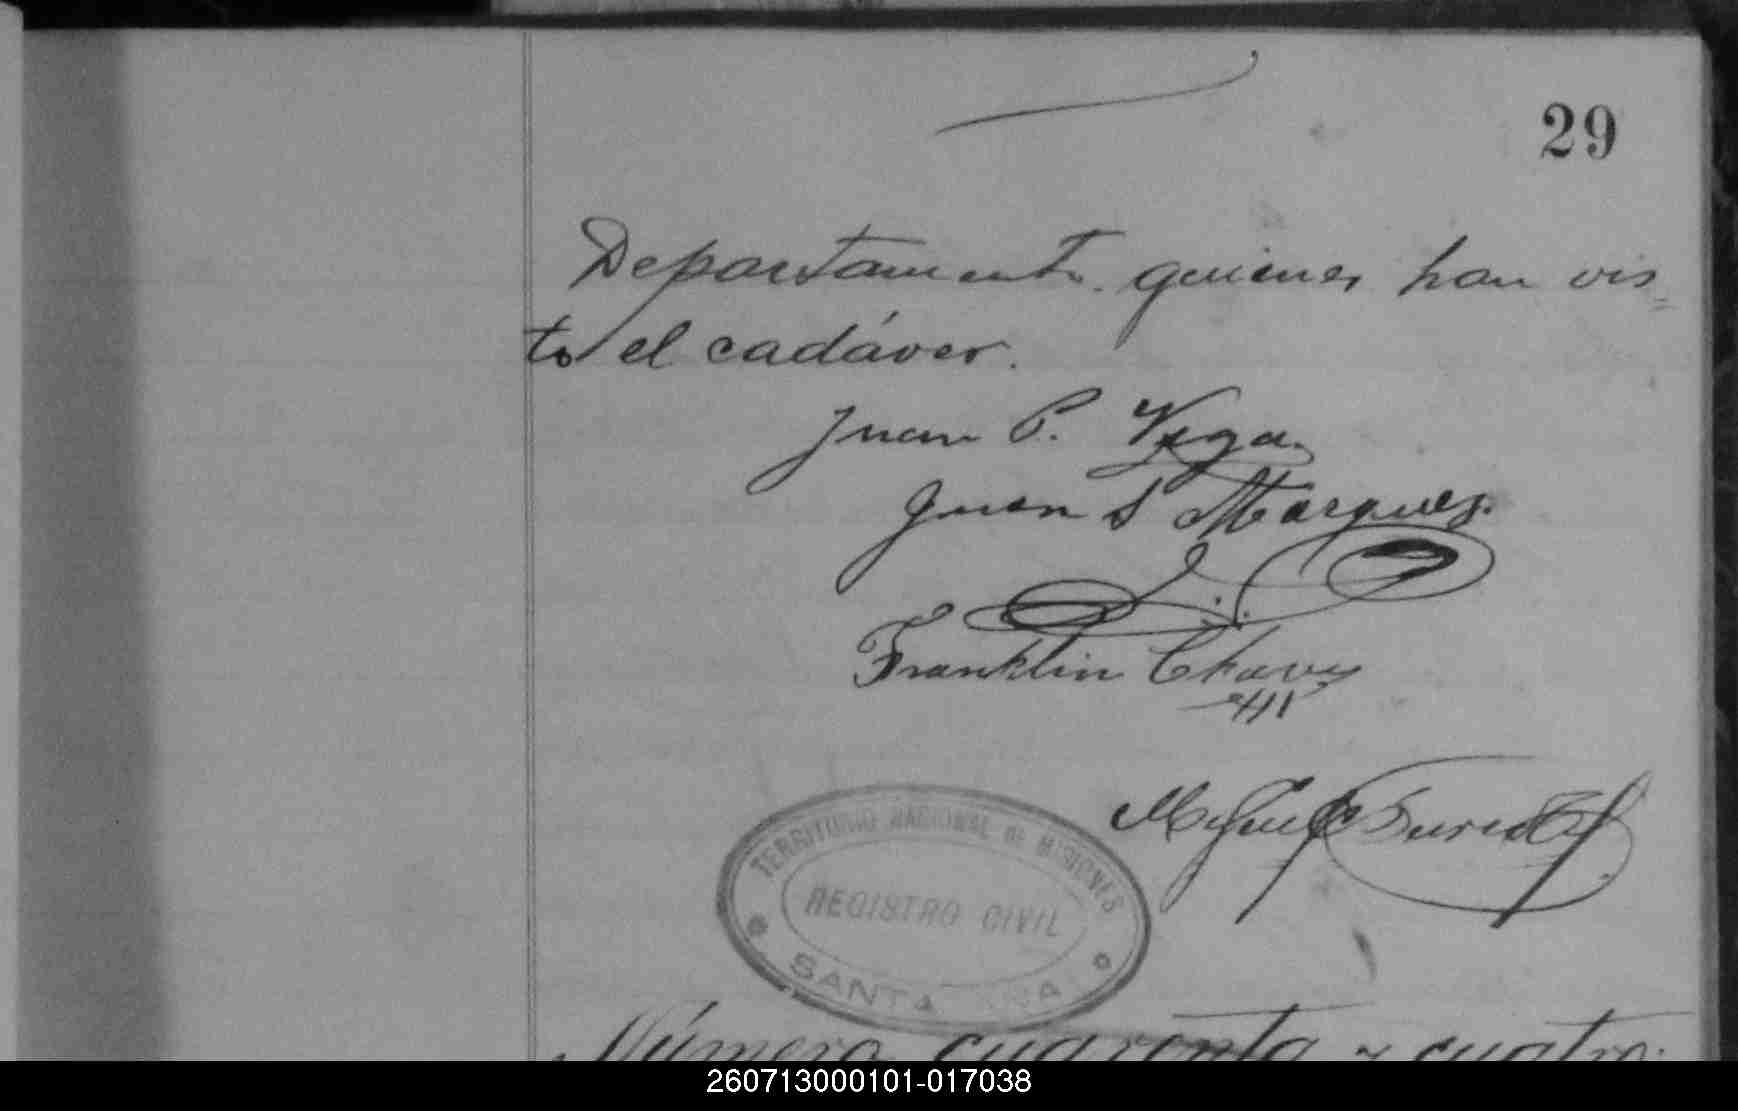 29
Departamento quienes han vis=
to el cadáver.
Juan P. Vega
Juan S Marques.
Franklin Chaves
Miguel
TERRITORIO NACIONAL DE MISIONES
REGISTRO CIVIL
SANTA ANA
Número cuarenta y cuatro.
260713000101-017038